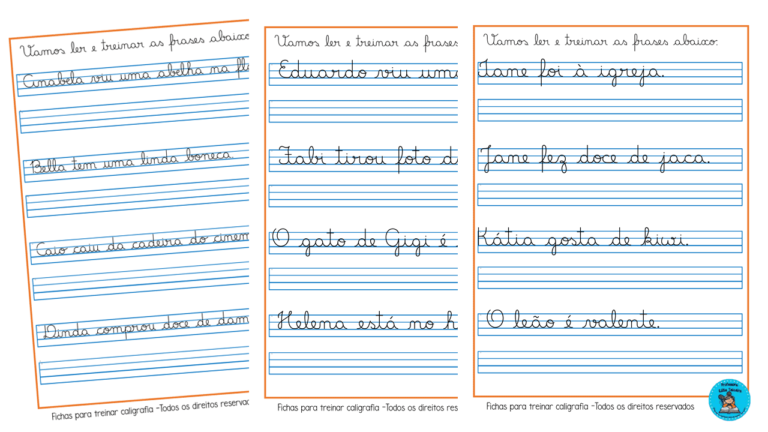 Vamos ler e treinar as frases abaixo
Anabela viu uma abelha na
Bella tem uma linda boneca.
Caio caiu da cadeira do
Dinda comprou doce de
Fichas para treinar caligrafia -Todos os direitos
Vamos ler e treinar as frases
Eduardo viu uma
Fabi tirou foto
O gato de Gigi é
Helena está no
Fichas para treinar caligrafia -Todos os direitos
Vamos ler e treinar as frases abaixo.
Iane foi à igreja.
Jane fez doce de jaca.
Kátia gosta de kiwi.
O leão é valente.
Fichas para treinar caligrafia -Todos os direitos reservados